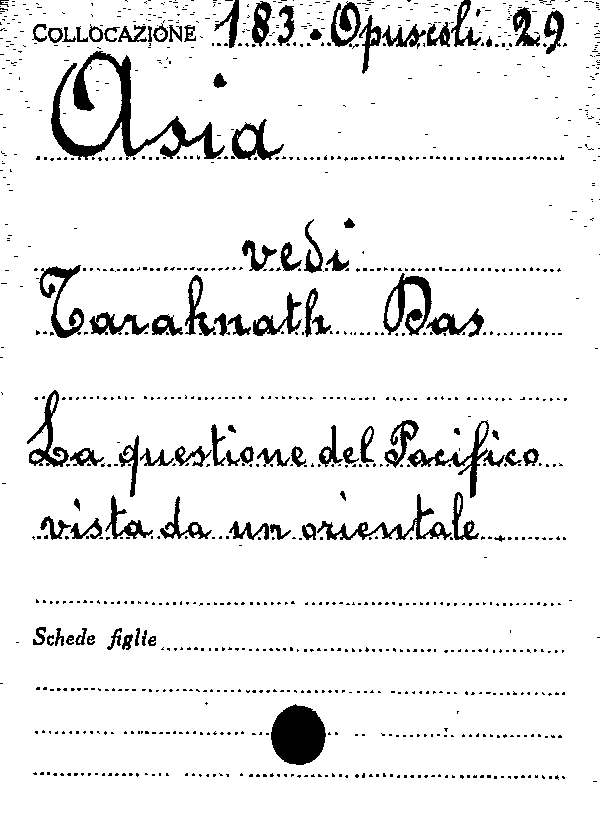 COLLOCAZIONE 183 - Opuscoli. 29
Asia
vedi
Taraknath Das
La questione del Pacifico
vista da un orientale.
Schede figlie